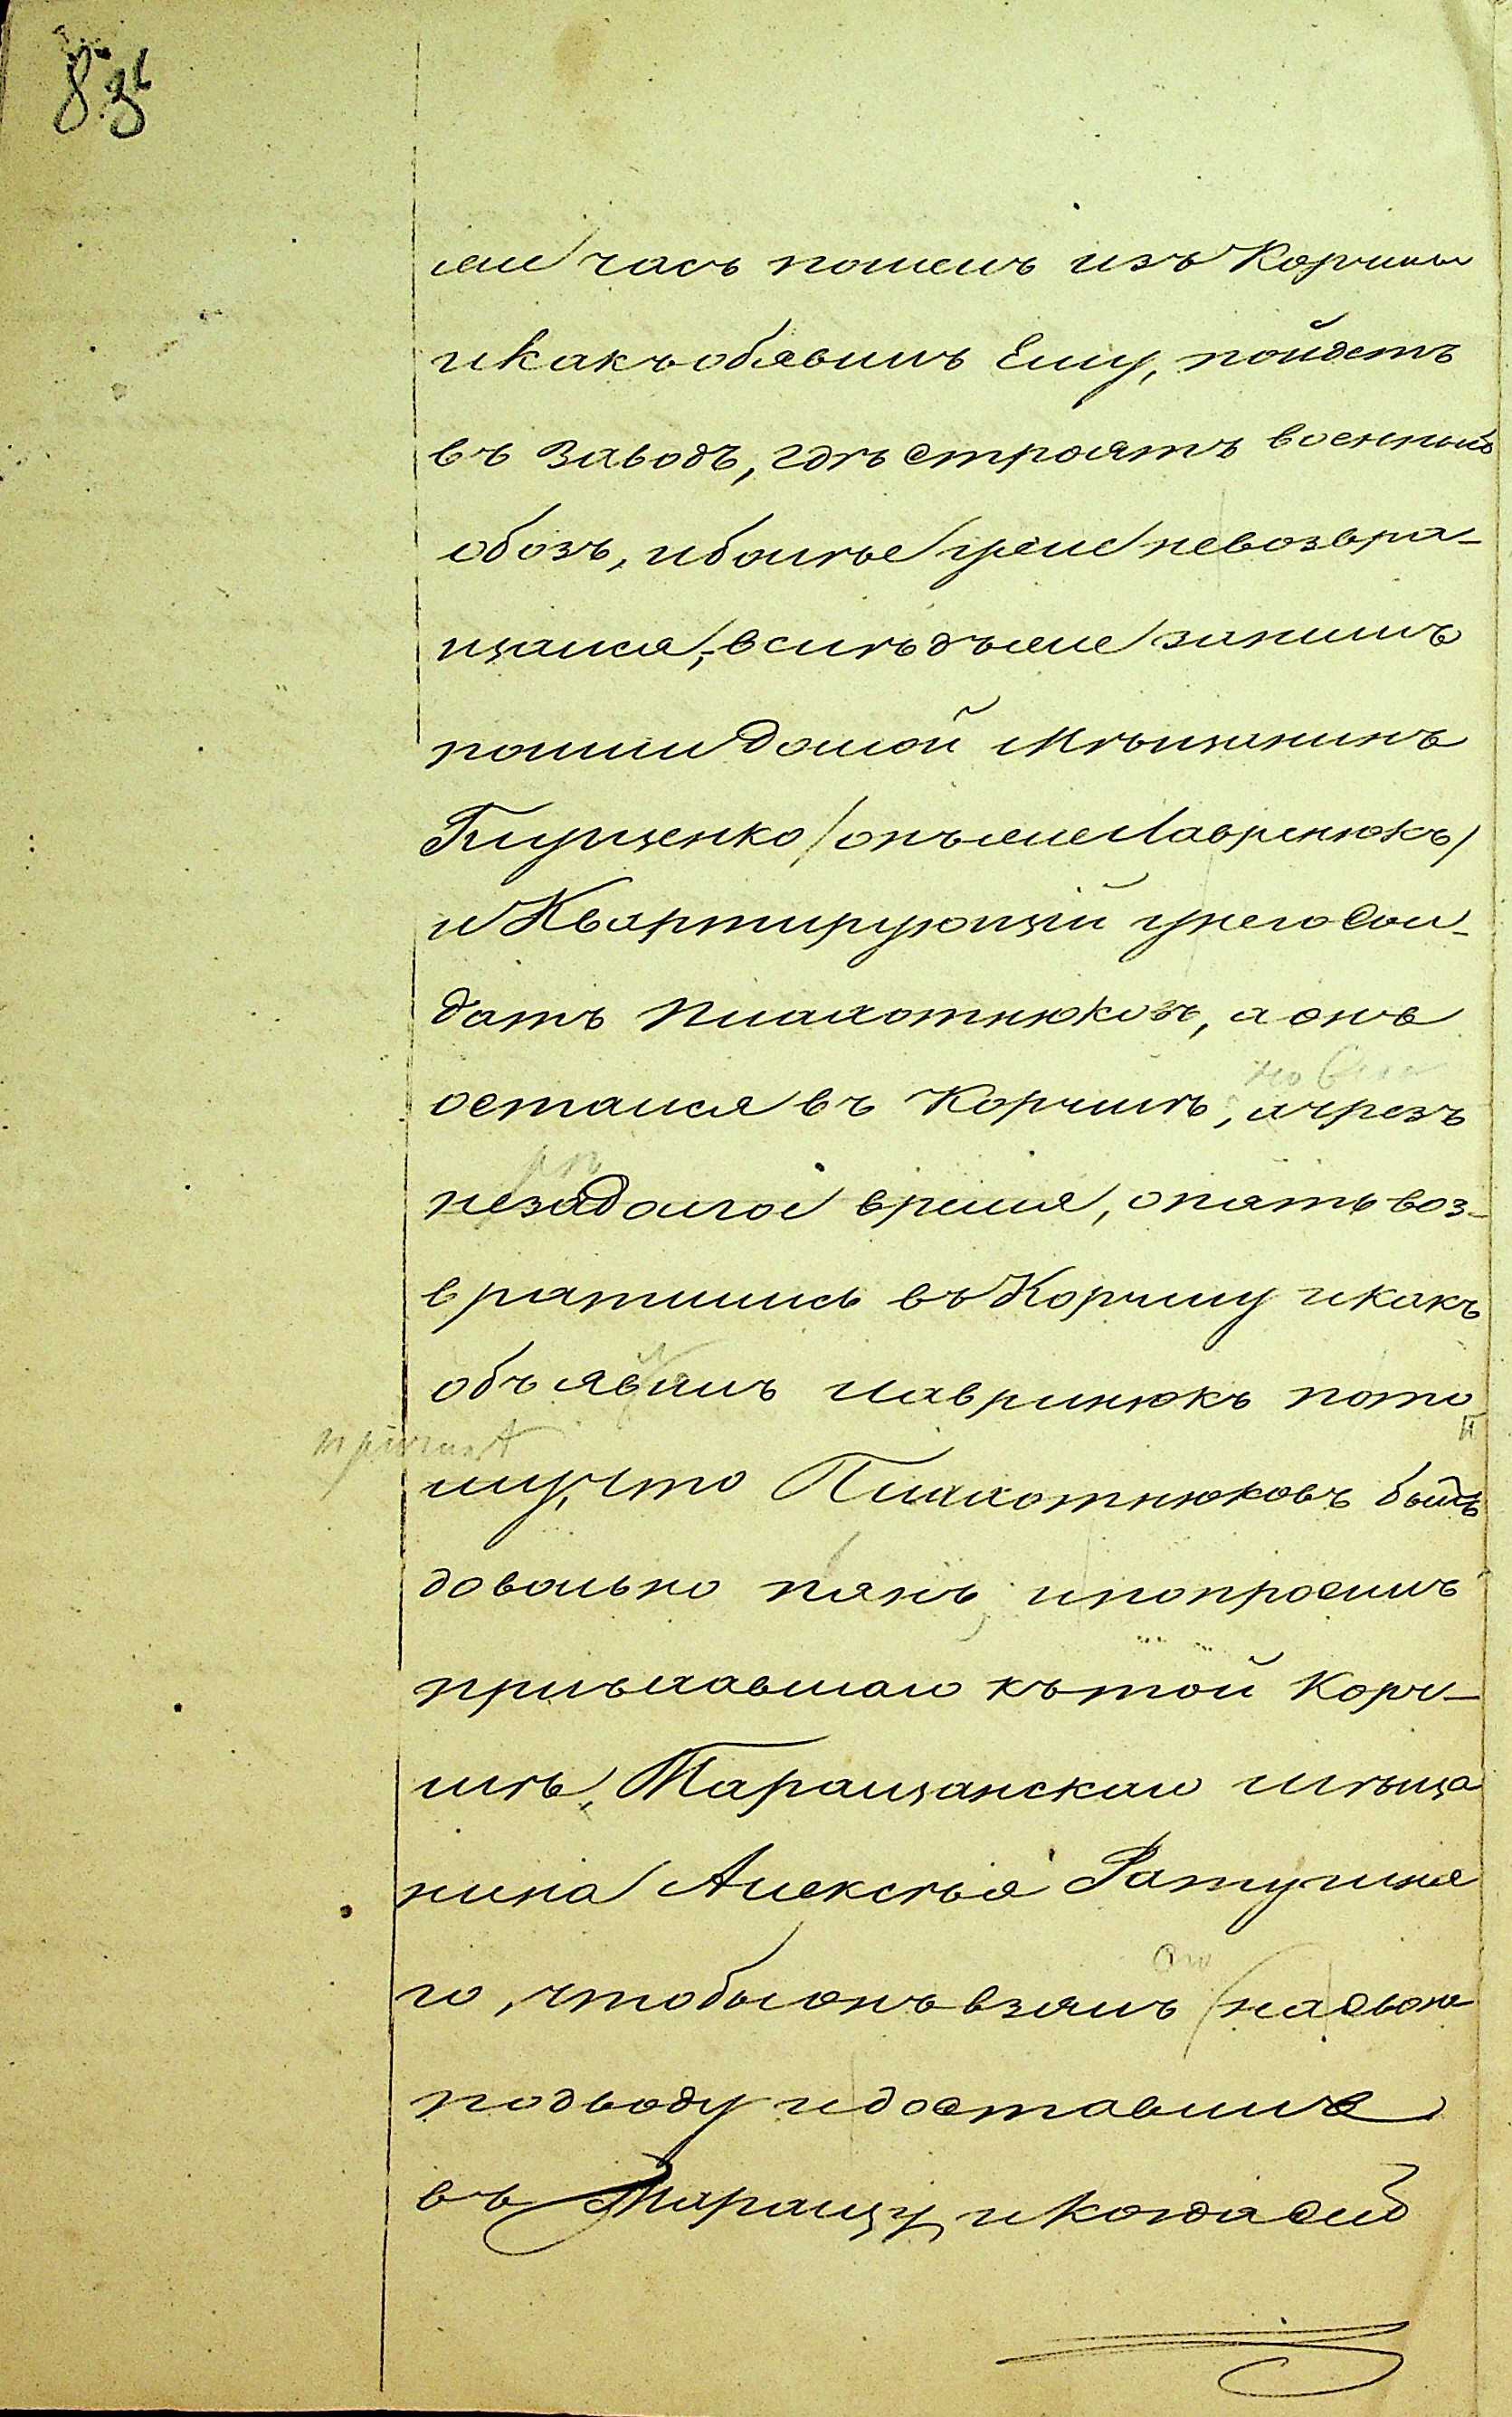 же часъ пошелъ изъ Корчмы
и какъ обявилъ Ему, пойдетъ
въ Заводъ, гдѣ строятъ военный
обозъ, и болѣе уже невозвра-
щался; вслѣдъ же за нимъ
пошли домой Мѣщанинъ
Глущенко /онъ же Лавренюкъ/
и Квартирующій у него Сол-
датъ Плахотнюковъ, а онъ
остался въ Корчмѣ, а чрезъ
незадолгое время, опять воз-
вратились въ Корчму и какъ
объявилъ Лавринюкъ пото
му, что Плахотнюковъ былъ
довольно пянъ, и попросилъ
пріѣхавшаго къ той Корч-
мѣ, Таращанскаго мѣща
нина Алексѣя Ратушня
го, чтобы онъ взялъ на свою
подводу и доставилъ
въ Таращу, и когда сей